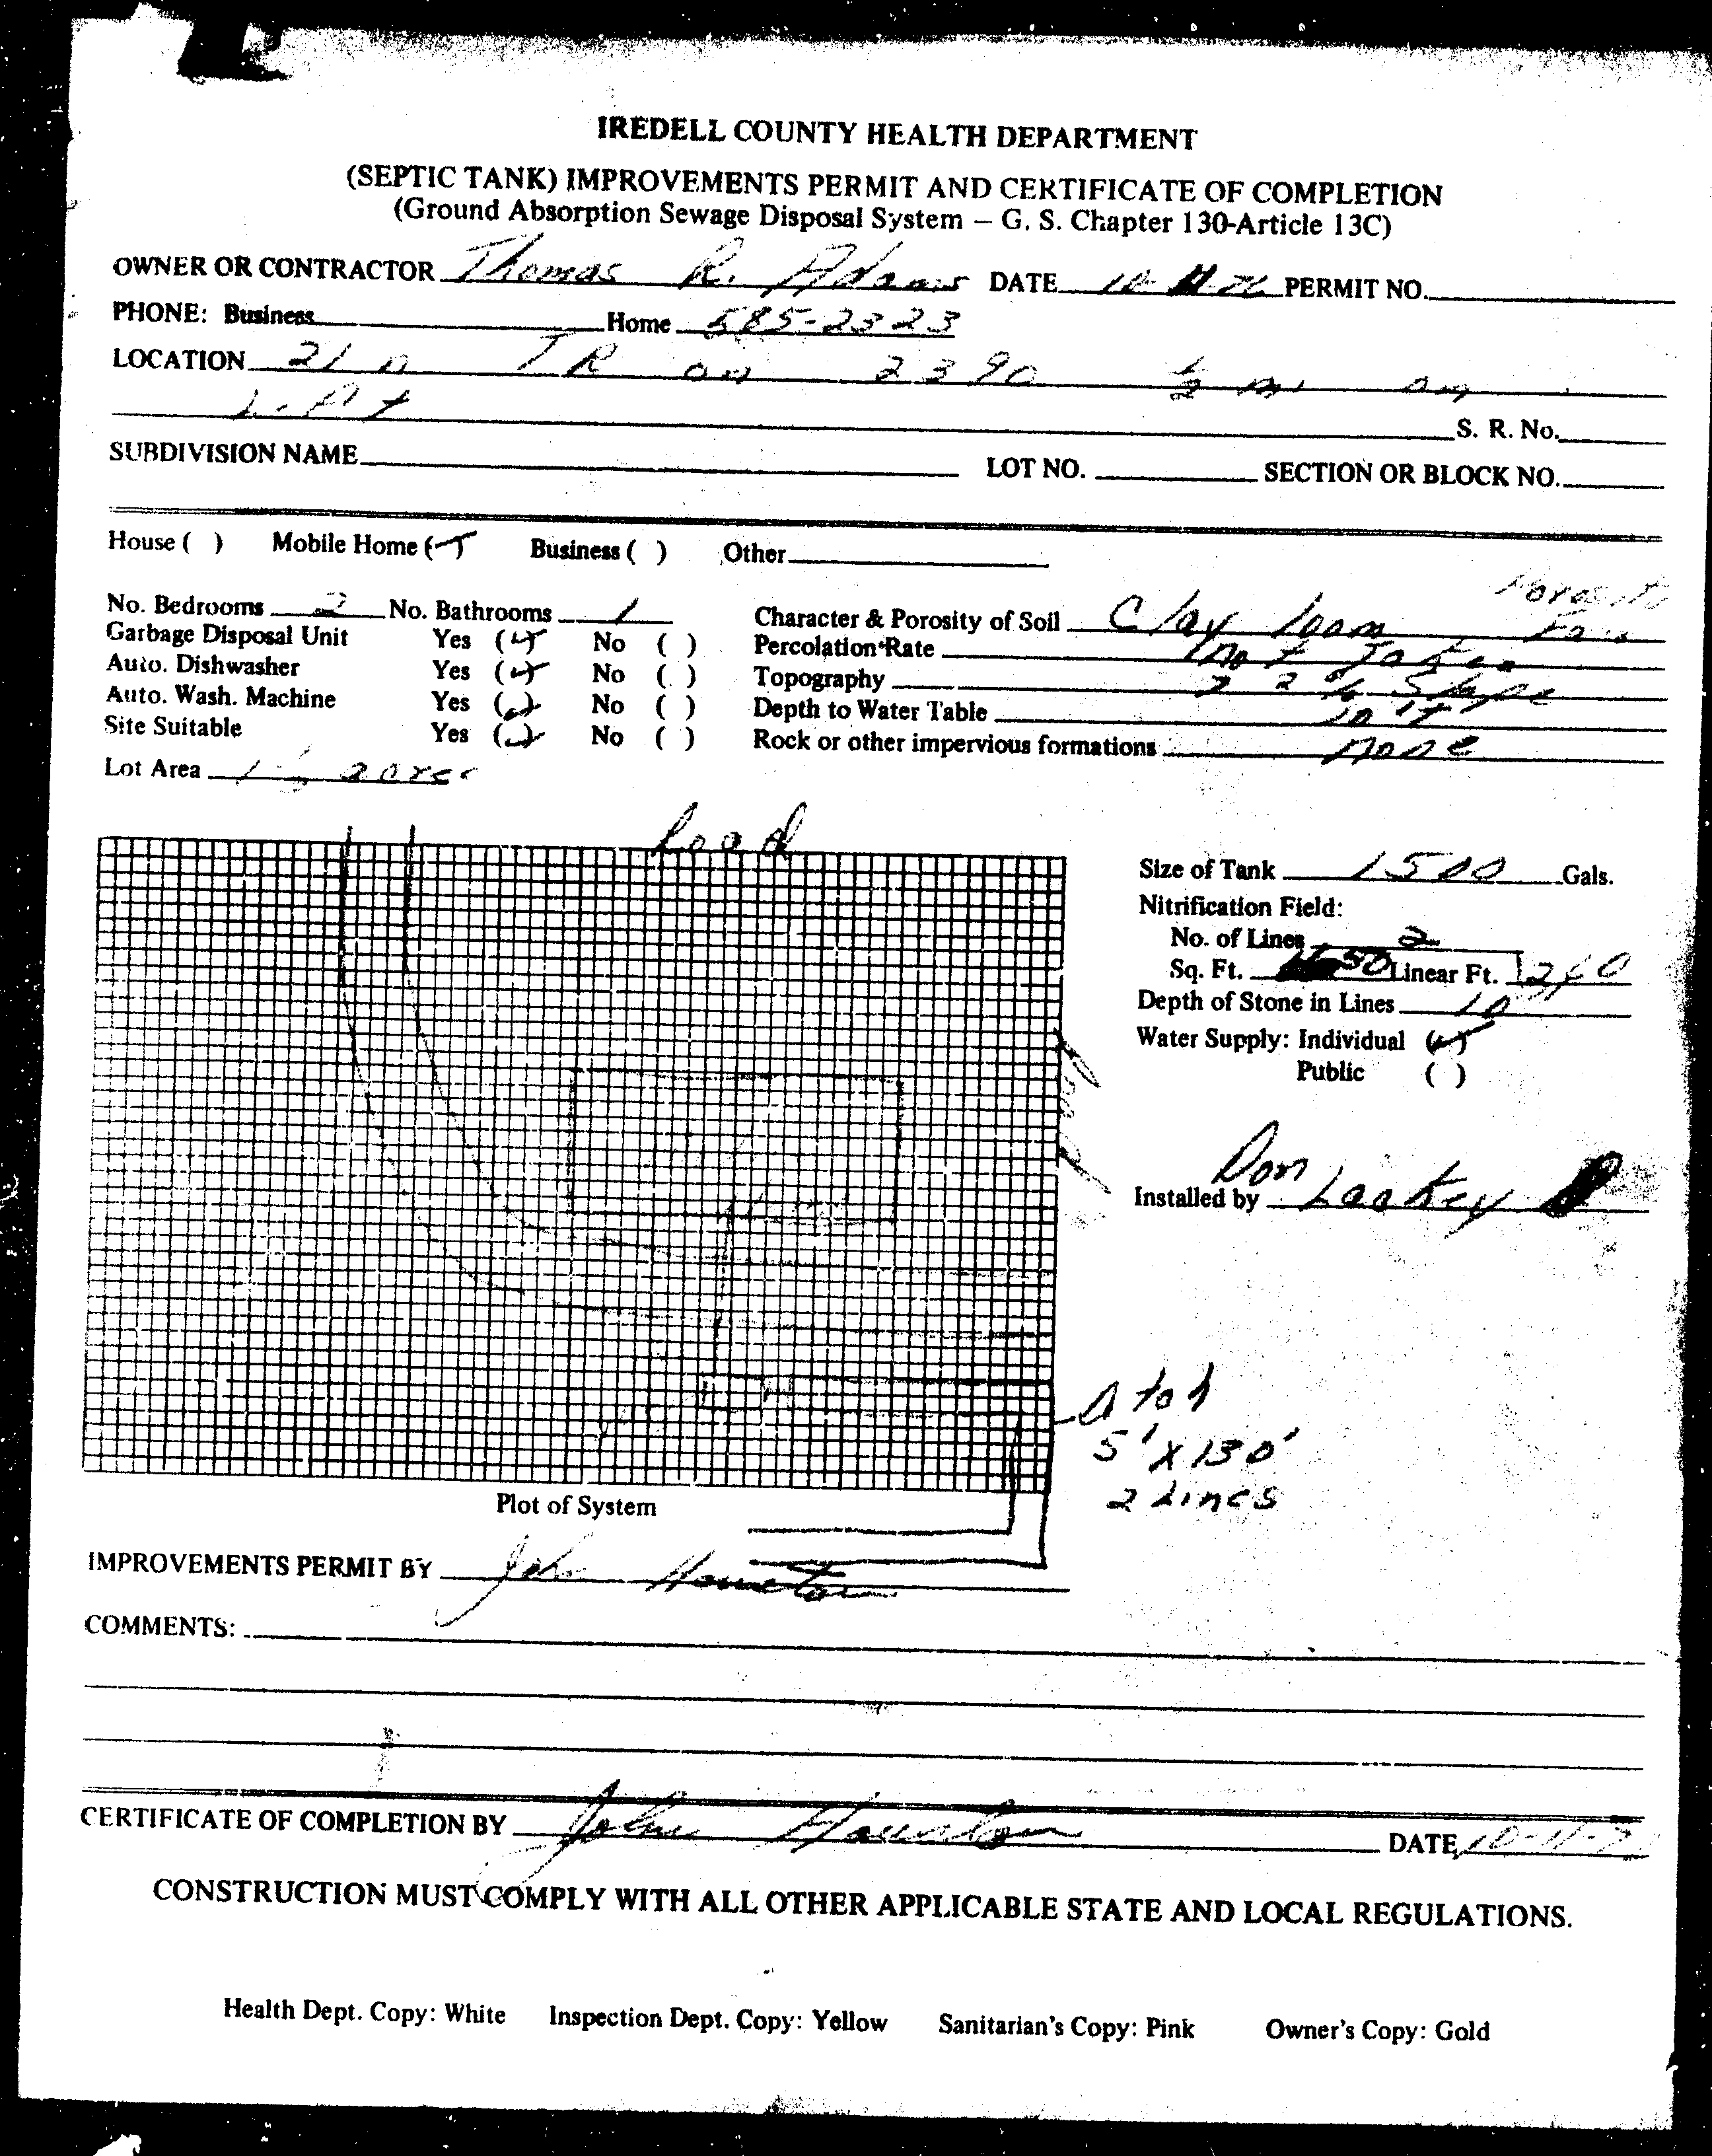 IREDELL COUNTY HEALTH DEPARTMENT
(SEPTIC TANK) IMPROVEMENTS PERMIT AND CERTIFICATE OF COMPLETION
(Ground Absorption Sewage Disposal System – G. S. Chapter 130-Article 13C)
OWNER OR CONTRACTOR Thomas R. Adams DATE PERMIT NO.
PHONE: Business Home 585-2323
LOCATION 21 n TR on 2390 1/2 mi on
Left
S. R. No.
SUBDIVISION NAME LOT NO. SECTION OR BLOCK NO.
House ( ) Mobile Home (✓) Business ( ) Other
Porosity
No. Bedrooms 2 No. Bathrooms 1 Character & Porosity of Soil Clay loam,
Garbage Disposal Unit Yes (✓) No ( ) Percolation Rate not Taken
Auto. Dishwasher Yes (✓) No ( ) Topography 2% Slope
Auto. Wash. Machine Yes (✓) No ( ) Depth to Water Table
Site Suitable Yes (✓) No ( ) Rock or other impervious formations none
Lot Area acres
Road
Size of Tank 1500 Gals.
Nitrification Field:
No. of Lines 2
Sq. Ft. Linear Ft. 260
Depth of Stone in Lines 10"
Water Supply: Individual (✓)
Public ( )
Don
Installed by Lackey
5' X 130'
2 Lines
Plot of System
IMPROVEMENTS PERMIT BY John Houston
COMMENTS:
CERTIFICATE OF COMPLETION BY John Houston DATE 10-11-
CONSTRUCTION MUST COMPLY WITH ALL OTHER APPLICABLE STATE AND LOCAL REGULATIONS.
Health Dept. Copy: White Inspection Dept. Copy: Yellow Sanitarian's Copy: Pink Owner's Copy: Gold